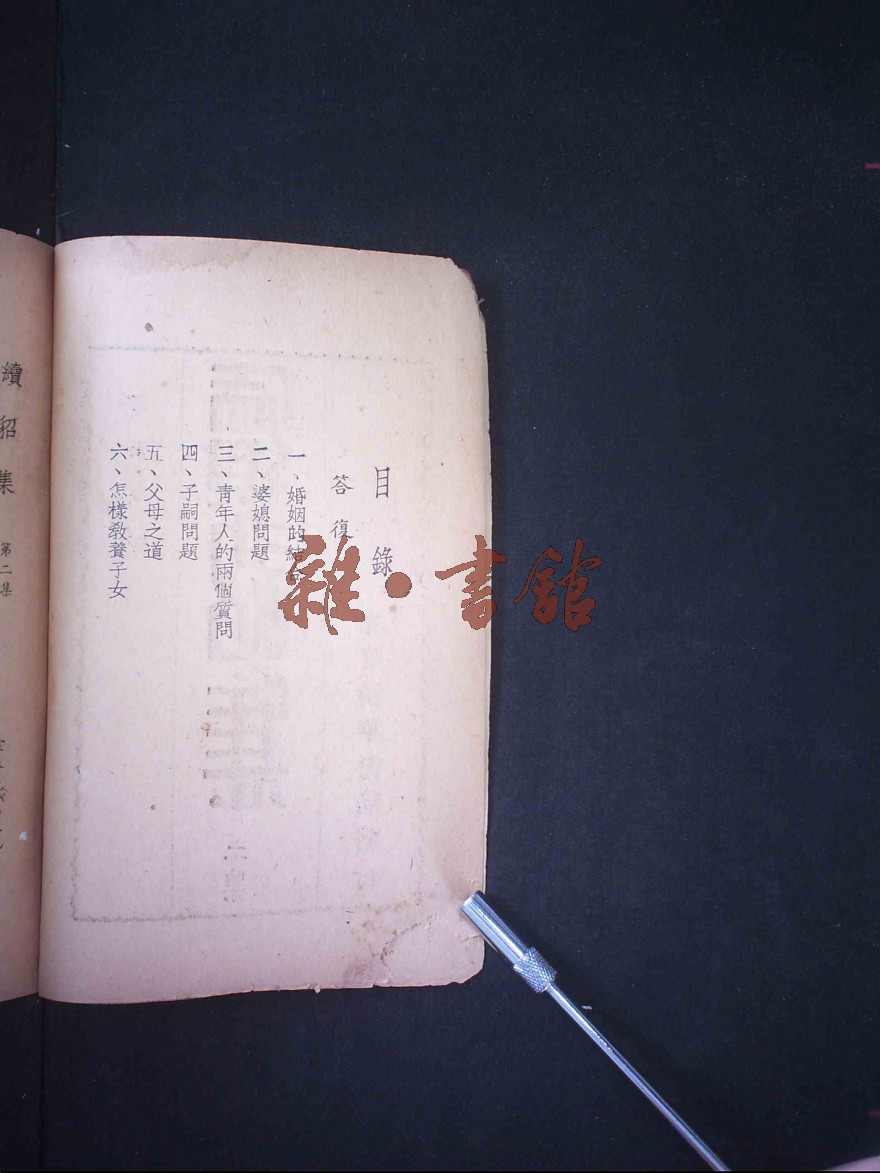 目錄
答復
一、婚姻的結合
二、婆媳問題
三、青年人的兩個質問
四、子嗣問題
五、父母之道
六、怎樣敎養子女
續貂集
第二集
雜·書館